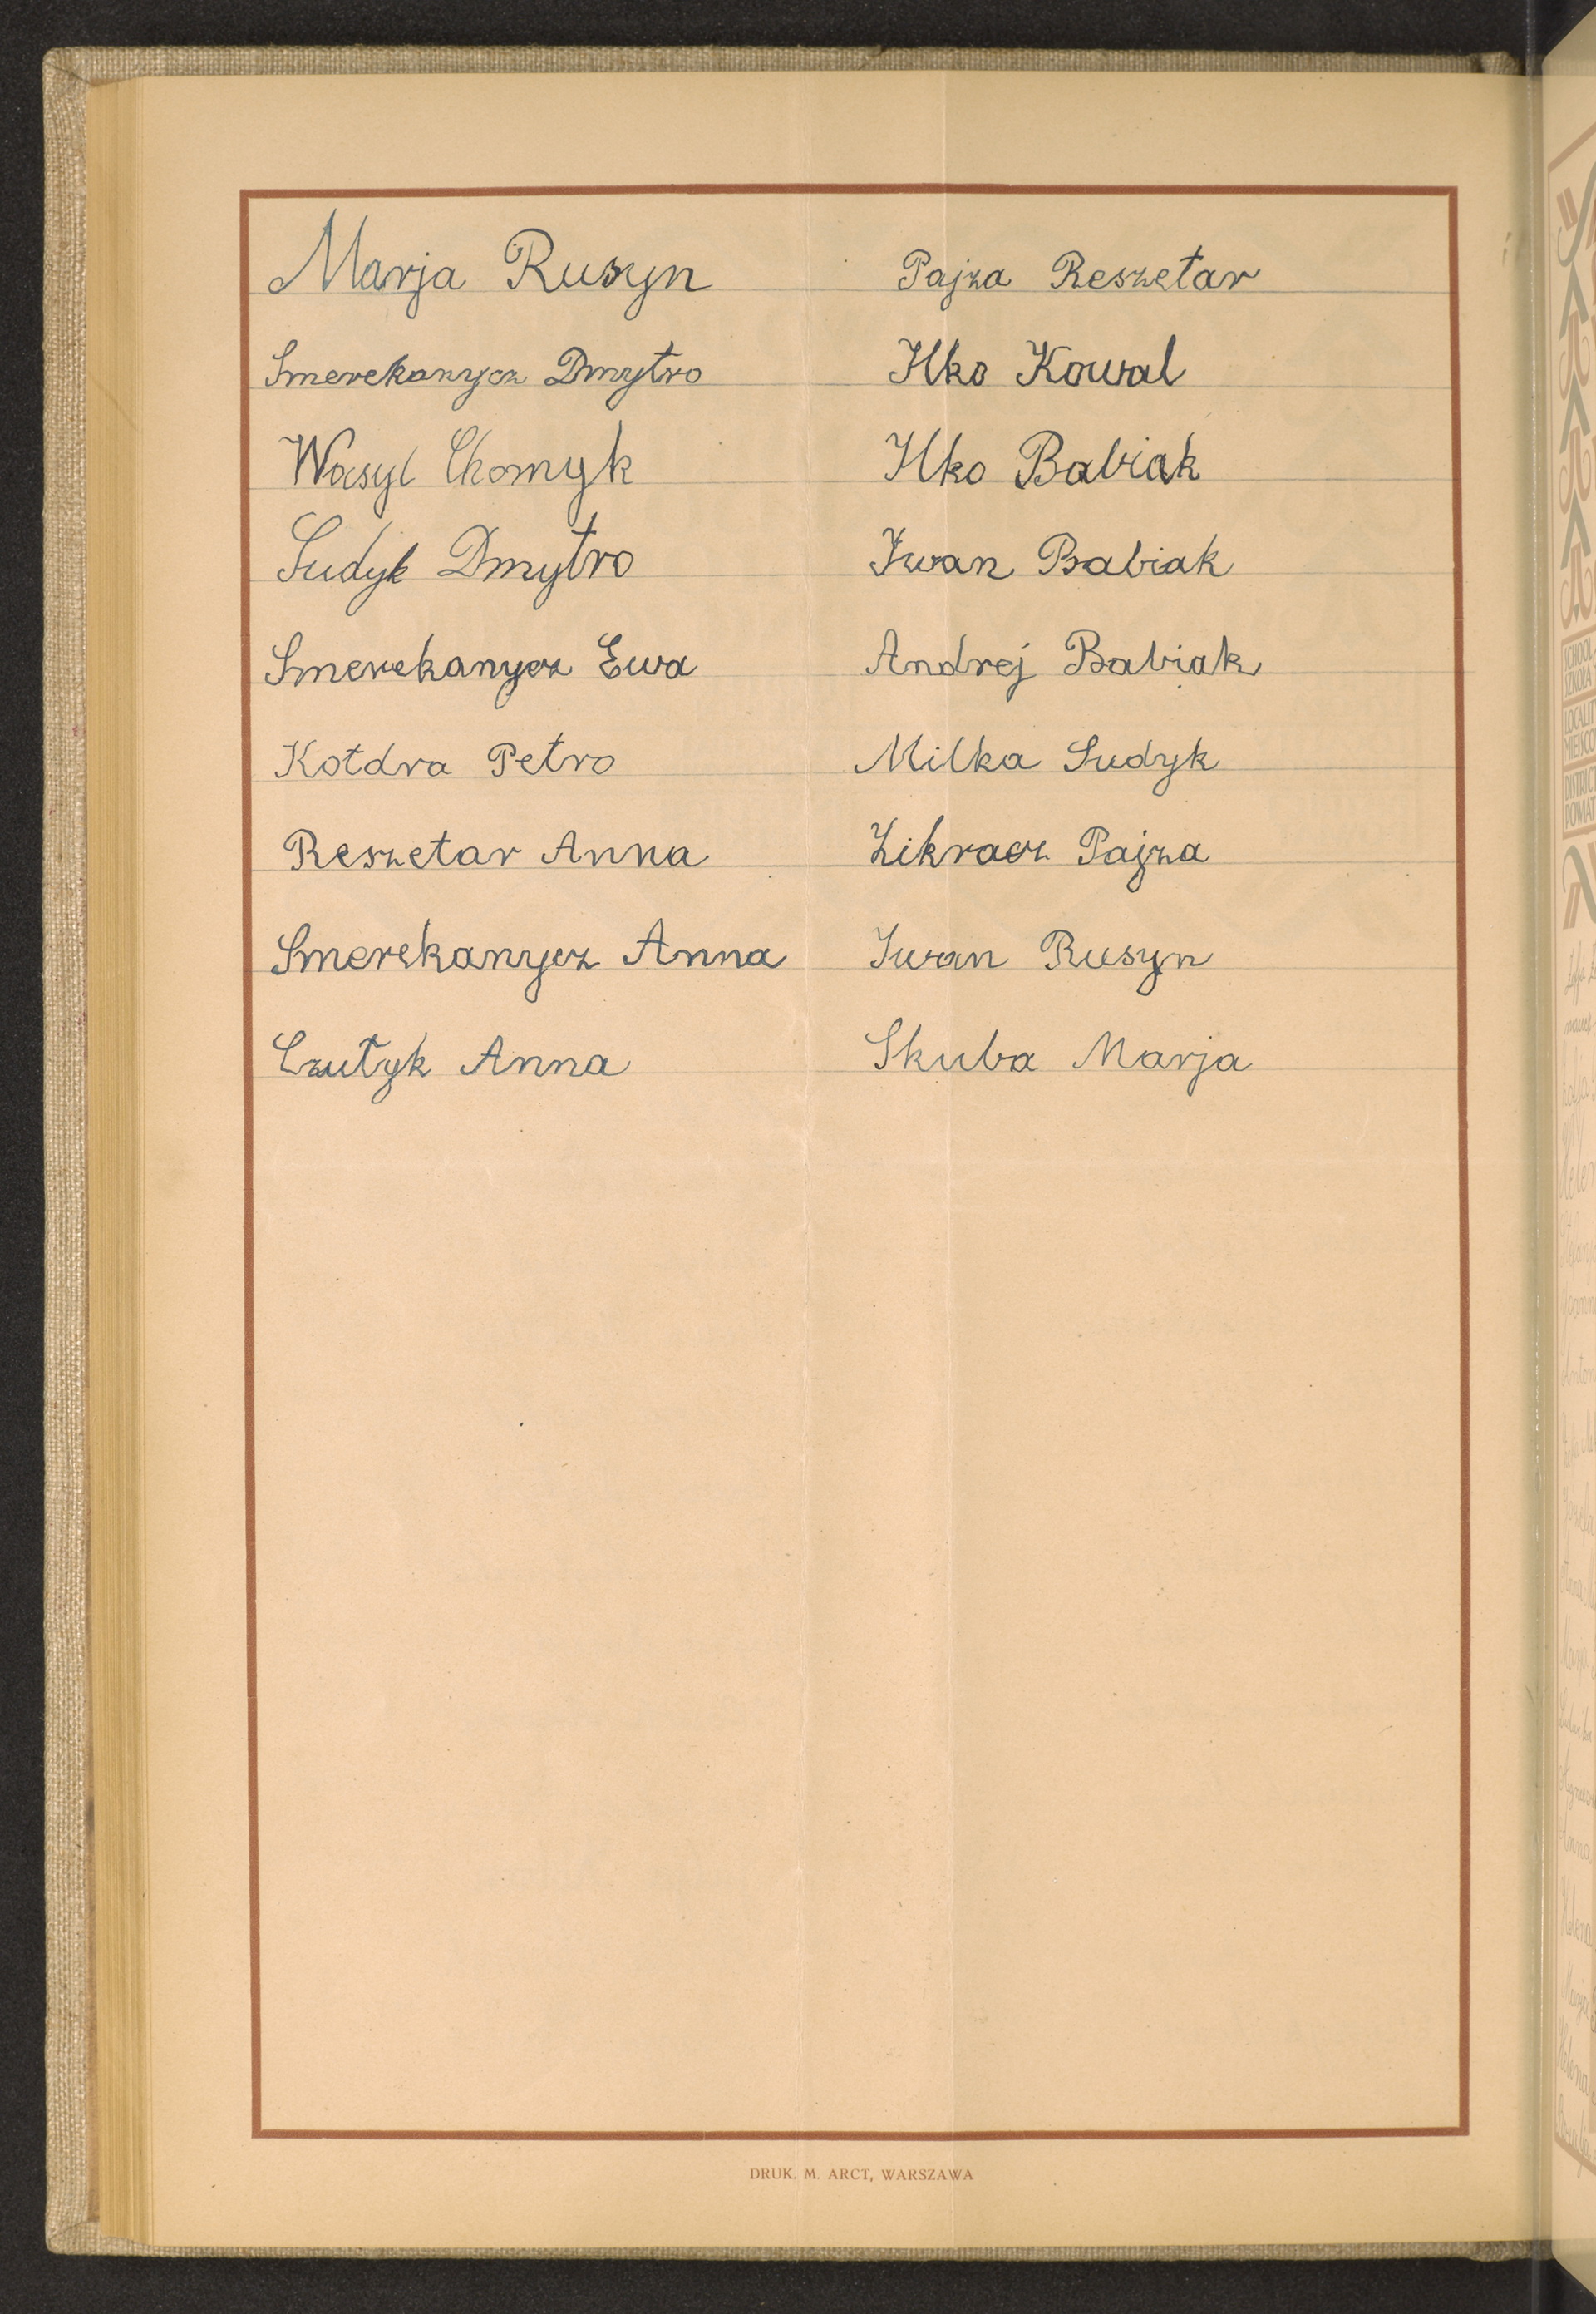 Marja Rusyn
Smerekanycz Dmytro
Wasyl Chomyk
Sudyk Dmytro
Smerekanycz Ewa
Kotdra Petro
Reszetar Anna
Smerekanycz Anna
Czutyk Anna
Pajza Reszetar
Ilko Kowal
Ilko Babiak
Iwan Babiak
Andrej Babiak
Milka Sudyk
Zikracz Pajza
Iwan Rusyn
Skuba Marja
DRUK. M. ARCT, WARSZAWA